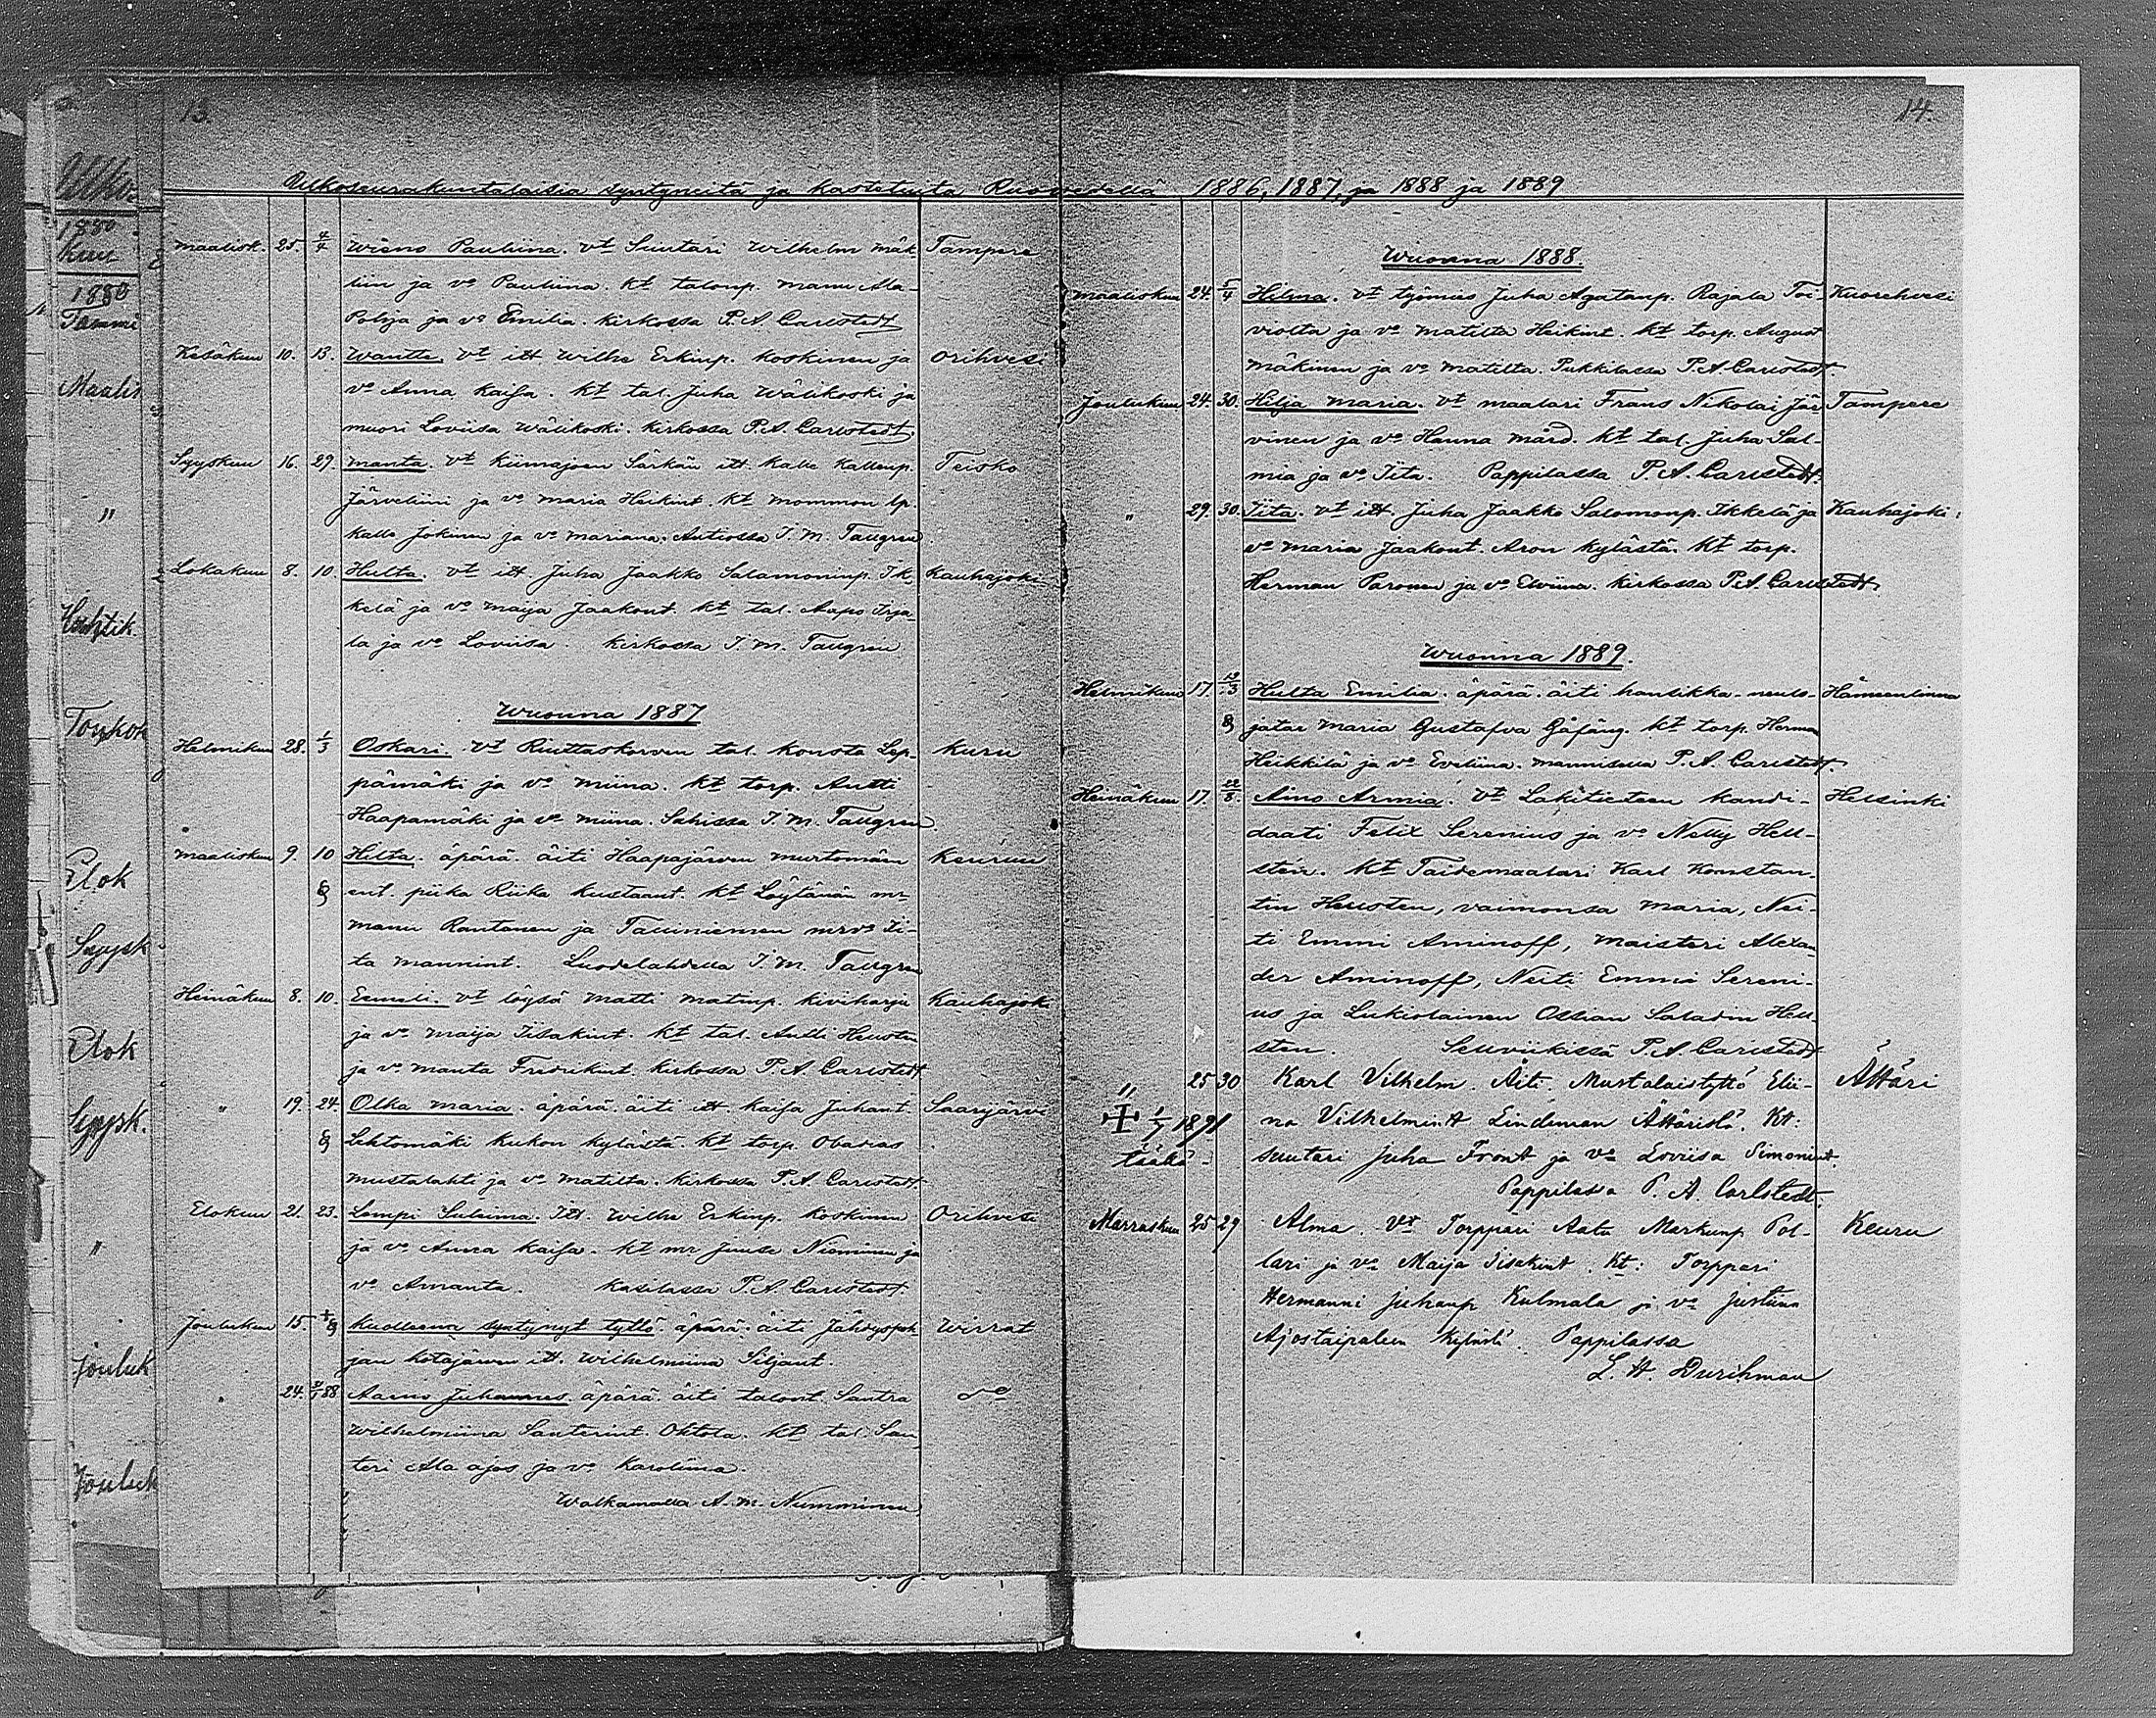 13.
14.
Ulkoseurakuntalaisia syntyneitä ja kastetuita Ruovedellä 1886, 1887, ja 1888 ja 1889
Maalisk. 25. 4/4 Wieno Pauliina. vt Suutari Wilhelm Mäk Tampere
liin ja vo Pauliina. kt talonp. Manu Ala-
Pohja ja vo Emilia. kirkossa P. A. Carlstedt
Kesäkuu 10. 13. Wantte. vt itt Wilhe Erkinp. Koskinen ja Orihvesi
vo Anna Kaisa. kt tal. Juha Wälikoski ja
muori Loviisa Wälikoski. kirkossa P. A. Carlstedt
Syyskuu 16. 29. Manta. vt Kiimajoen Särkän itt. Kalle Kallenp. Teisko
Järveliini ja vo Maria Heikint. kt Mommon lp.
Kalle Jokinen ja vo Mariana. Autiossa J. M. Tallgren
Lokakuu 8. 10. Hulta. vt itt. Juha Jaakko Salamoninp. Ik- Kauhajoki
kelä ja vo Maija Jaakont. kt tal. Aapo Irja-
la ja vo Loviisa. kirkossa J. M. Tallgren
Wuonna 1887
Helmikuu 28. 1/3 Oskari. vt Riuttaskorven tal. Konsta Lep- Kuru
pämäki ja vo Miina. kt torp. Antti
Haapamäki ja vo Miina. Sahissa J. M. Tallgren.
Maaliskuu 9. 10 Hilta. äpärä. äiti Haapajärven Murtomäen Keuruu
ent. piika Riika Kustaant. kt Löytänän mr
Manu Rantanen ja Talliniemen mrvo Ii-
ta Mannint. Luodelahdella J. M. Tallgren
Heinäkuu 8. 10. Eemeli. vt löysä Matti Matinp. Kiviharju Kauhajoki
ja vo Maija Iisakint. kt tal. Antti Hellsten
ja vo Manta Fredrikint. kirkossa P. A. Carlstedt
" 19. 24. Olka Maria. äpärä. äiti itt Kaisa Juhant. Saarijärvi
Lehtomäki Kukon kylästä. kt torp. Obadias
Mustalahti ja vo Matilta. kirkossa P. A. Carlstedt
Elokuu 21. 23. Lempi Sulaima. Itt. Wilhe Erkinp. Koskinen Orihvesi
ja vo Anna Kaisa. kt mr Juuse Nieminen ja
vo Amanta. Kasilassa P. A. Carlstedt.
Joulukuu 15. + Kuolleena syntynyt tyttö. äpärä. äiti Jähdyspoh Wirrat
jan Kotajärven itt. Wilhelmiina Siljant.
" 24. 88 Aarno Juhannes. äpärä. äiti talont. Santra do
Wilhelmiina Santerint. Ohtola. kt tal. San-
teri Ala ajos ja vo Karoliina.
Walkamalla A. M. Numminen
Wuonna 1888.
Maaliskuu 24. 5/4 Hilma. vt työmies Juha Agatanp. Rajala Toi- Kuorehvesi
violta ja vo Matilta Heikint. kt torp. August
Mäkinen ja vo Matilta. Pukkilassa P. A. Carlstedt
Joulukuu 24. 30. Hilja Maria. vt maalari Frans Nikolai Jär Tampere
vinen ja vo Hanna Mård. kt tal. Juha Sal-
mia ja vo Iita. Pappilassa P. A. Carlstedt.
" 29. 30. Iita. vt itt Juha Jaakko Salomonp. Ikkelä ja Kauhajoki
vo Maria Jaakont. Aron kylästä. kt torp.
Herman Paronen ja vo Elviina. kirkossa P. A. Carlstedt.
Wuonna 1889.
Helmikuu 17. 13/3 Hulta Emilia. äpärä. äiti hansikka- neulo- Hämeenlinna
jatar Maria Gustafva Gåfäng. kt torp. Herman
Heikkilä ja vo Eveliina. Mannisella P. A. Carlstedt.
Heinäkuu 17. 22/8. Aino Armia. vt Lakitieteen kandi- Helsinki
daati Felix Serenius ja vo Nelly Hell-
stén. kt Taidemaalari Karl Konstan-
tin Hellsten, vaimonsa Maria, Nei-
ti Emmi Aminoff, Maisteri Alexan-
der Aminoff, Neiti Emmi Sereni-
us ja Lukiolainen Ossian Saladin Hell-
sten. P. A. Carlstedt
" 25 30 Karl Vilhelm. Äiti Mustalaistyttö Elii- Ättäri
✝ 1/7 1891 na Vilhelmint Lindeman Ättäristä. Kt:
täällä- suutari Juha Front ja vo Loviisa Simonint.
Pappilassa P. A. Carlstedt.
Marraskuu 25 29 Alma. Vt Torppari Aatu Markunp Pol- Keuru
lari ja vo Maija Iisakint. Kt: Torppari
Hermanni Juhanp Kulmala ja vo Justiina
Ajostaipaleen kylästä. Pappilassa
L. H. Durchman
1880
kuu
1880
Tammi
Maalis
"
Huhtik.
Toukok
Elok
Syysk
Elok
Syysk.
"
Jouluk
Jouluk